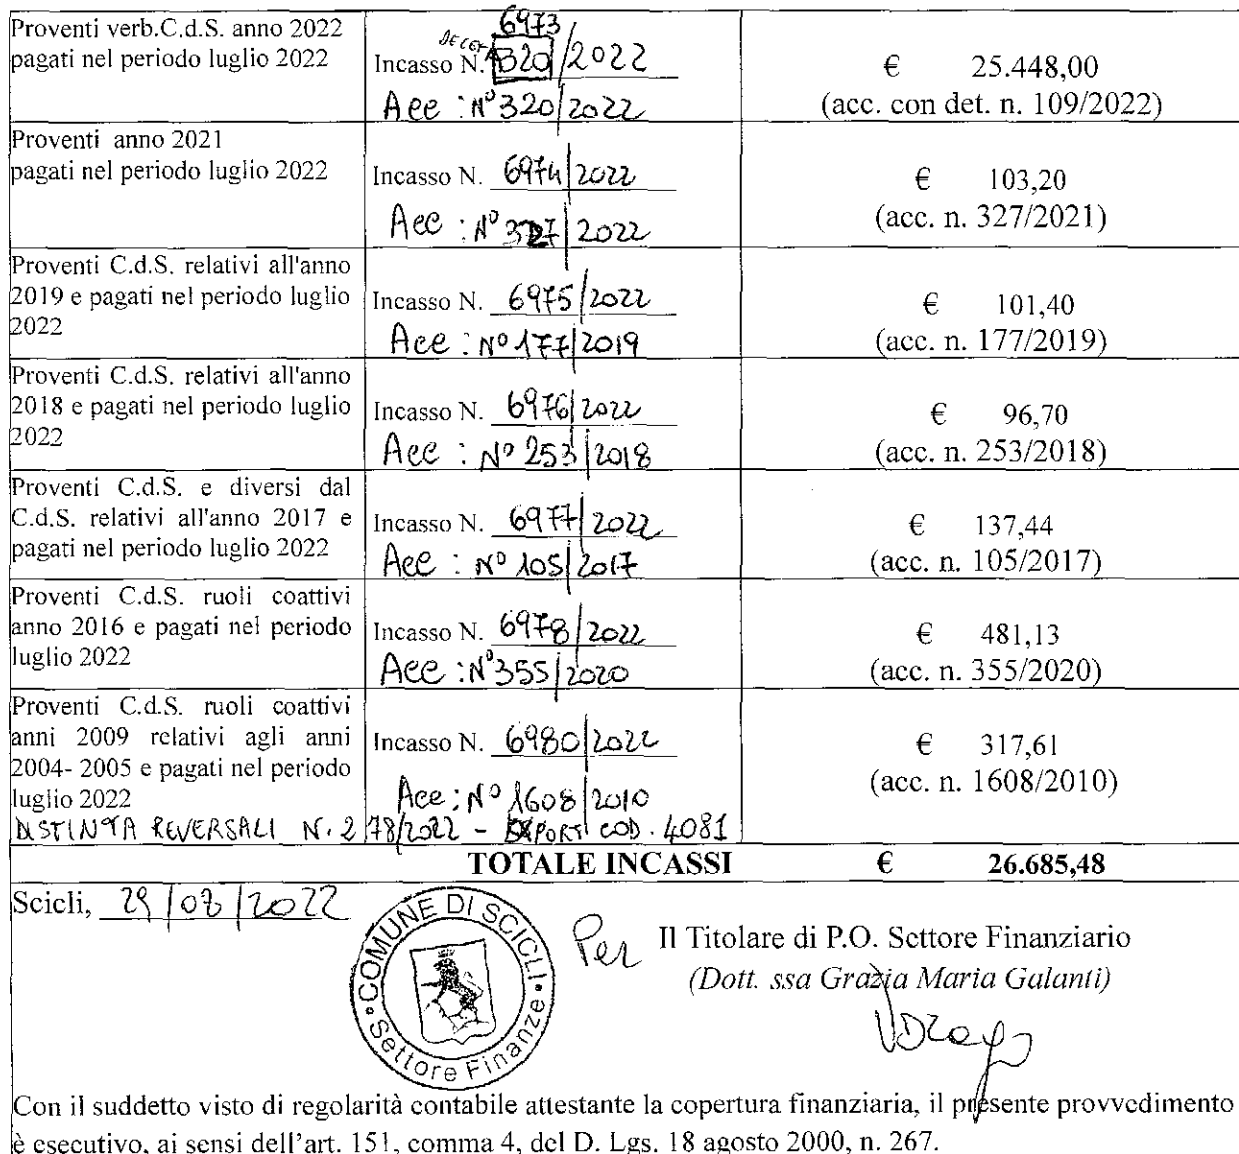 Proventi verb.C.d.S. anno 2022
pagati nel periodo luglio 2022
6973
Incasso N. 320/2022
Acc : N° 320/2022
€ 25.448,00
(acc. con det. n. 109/2022)
Proventi anno 2021
pagati nel periodo luglio 2022
Incasso N. 6974/2022
Acc : N° 327/2022
€ 103,20
(acc. n. 327/2021)
Proventi C.d.S. relativi all'anno
2019 e pagati nel periodo luglio
2022
Incasso N. 6975/2022
Acc : N° 177/2019
€ 101,40
(acc. n. 177/2019)
Proventi C.d.S. relativi all'anno
2018 e pagati nel periodo luglio
2022
Incasso N. 6976/2022
Acc : N° 253/2018
€ 96,70
(acc. n. 253/2018)
Proventi C.d.S. e diversi dal
C.d.S. relativi all'anno 2017 e
pagati nel periodo luglio 2022
Incasso N. 6977/2022
Acc : N° 105/2017
€ 137,44
(acc. n. 105/2017)
Proventi C.d.S. ruoli coattivi
anno 2016 e pagati nel periodo
luglio 2022
Incasso N. 6978/2022
Acc : N° 355/2020
€ 481,13
(acc. n. 355/2020)
Proventi C.d.S. ruoli coattivi
anni 2009 relativi agli anni
2004- 2005 e pagati nel periodo
luglio 2022
Incasso N. 6980/2022
Acc : N° 1608/2010
€ 317,61
(acc. n. 1608/2010)
DISTINTA REVERSALI N. 278/2022 - EXPORT COD. 4081
TOTALE INCASSI € 26.685,48
Scicli, 29/07/2022
COMUNE DI SCICLI
Settore Finanze
Per Il Titolare di P.O. Settore Finanziario
(Dott. ssa Grazia Maria Galanti)
Con il suddetto visto di regolarità contabile attestante la copertura finanziaria, il presente provvedimento
è esecutivo, ai sensi dell'art. 151, comma 4, del D. Lgs. 18 agosto 2000, n. 267.